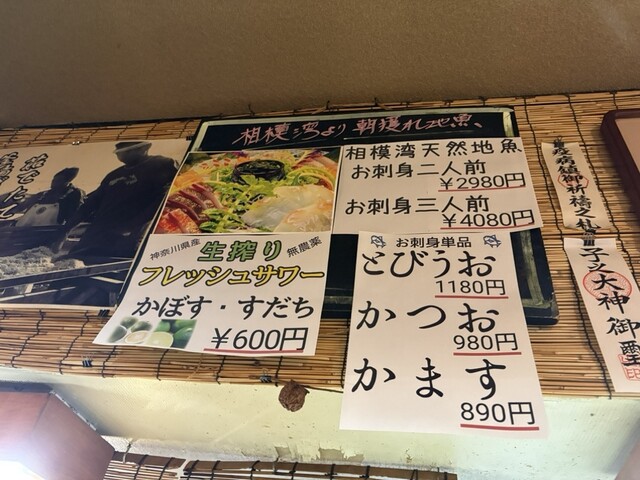 相模湾より朝獲れ地魚
相模湾天然地魚
お刺身二人前
￥2980円
お刺身三人前
￥4080円
お刺身単品
とびうお
1180円
かつお
980円
かます
890円
神奈川県産 生搾り 無農薬
フレッシュサワー
かぼす・すだち
￥600円